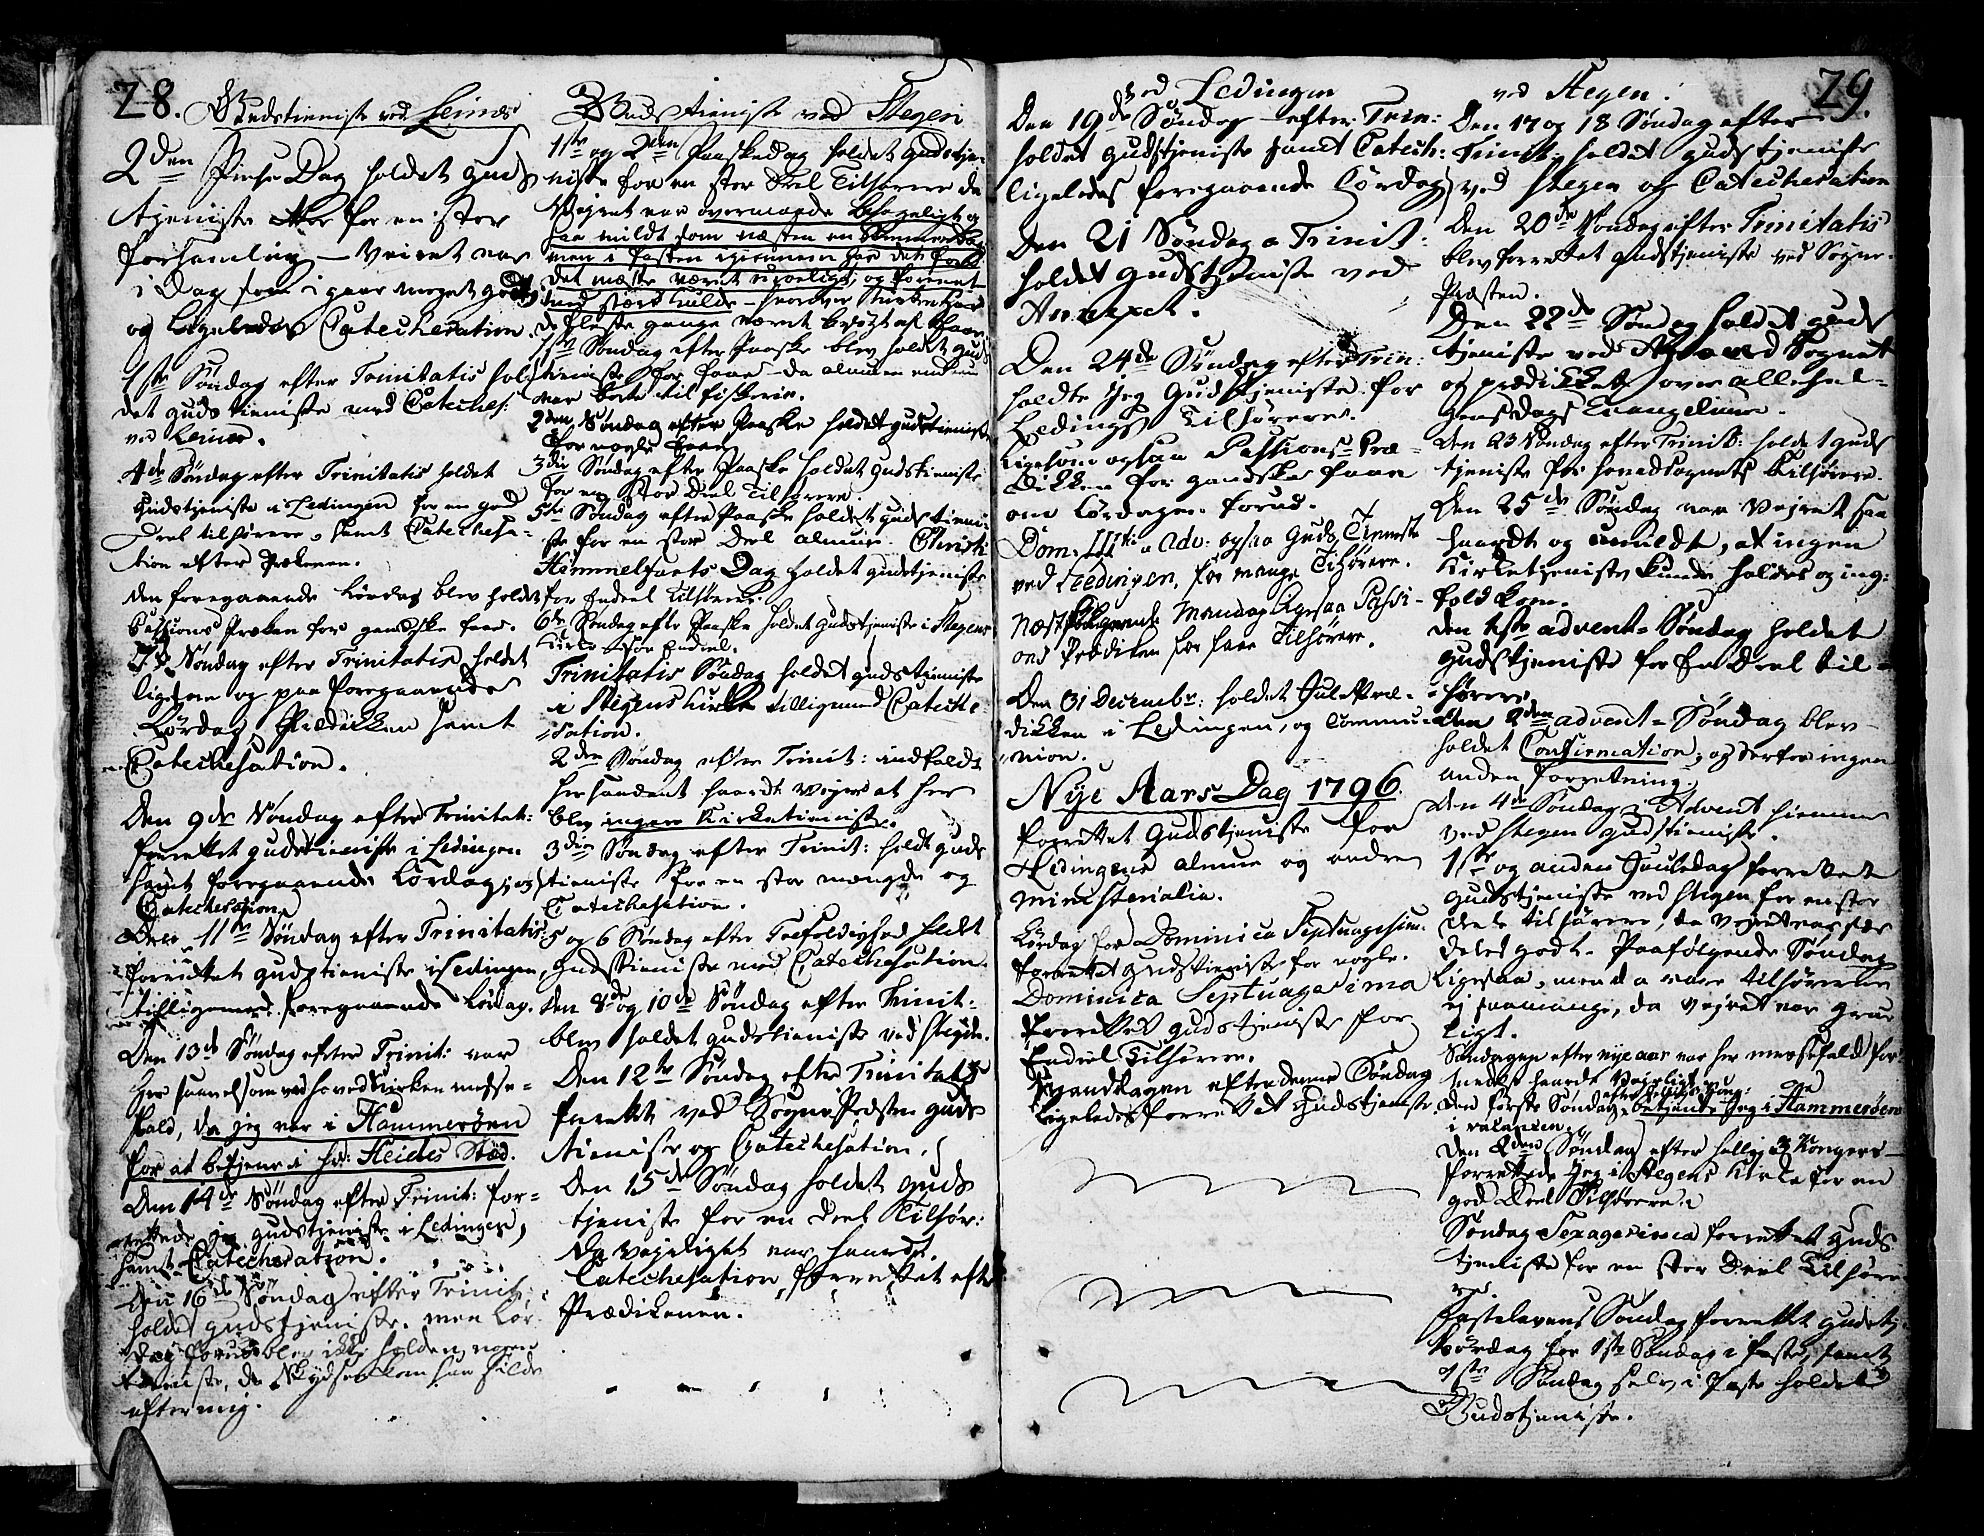 28.
Gudstieniste ved Leines
2den Pintse Dag holdet Guds
tjeniste for en stor
Forsamling – Veiret var
i Dag som i gaar meget godt
og ligeledes Catechesation.
1ste Søndag efter Trinitatis hol
det gudstieniste med Cateches:
ved Leines.
4de Søndag efter Trinitatis holdet
Gudstjeniste i Ledingen for en god
Deel tilhørere, samt Catechesa-
tion efter Prækenen.
den foregaaende Lørdag blev holdet
Passions Præken for gandske faae.
Søndag efter Trinitatis holdet
ligesaa og paa foregaaende
Lørdag Prædicken samt
Catechesation.
Den 9de Søndag efter Trinitat:
forrettet gudstieniste i Ledingen
samt foregaaende Lørdag, og
Catechesation
Den 11te Søndag efter Trinitatis
forrettet gudstieniste i Ledingen
tilligemed foregaaende Lørdag.
Den 13de Søndag efter Trinit: var
her saavelsom ved hovedkirken messe-
fald, da jeg var i Hammerøen
for at betjene i Hr: Heides Sted.
Den 14de Søndag efter Trinit: for-
rettede jeg gudstjeniste i Ledingen,
samt Catechesation.
Den 16de Søndag efter Trinit:
holdet gudstjeniste, men Lør-
dag forud blev ikke holden nogen
tieniste, da Skydsen kom saa silde
efter mig.
Gudstieniste ved Stegen
1ste og 2den Paaskedag holdet gudstje-
niste for en stor Deel Tilhørere da
Vejret var overmaade behageligt og
saa mildt som næsten en Sommerdag
men i Fasten igiennem har det for
det meste været uroeligt, og forenet
med stærk kulde –
de fleste gange været besøgt af faae
1ste Søndag efter Paaske blev holdet guds
tieniste for faae – da almuen endnu
var borte til fiskerie.
2den Søndag efter Paaske holdet gudstieniste
for nogle faae
3die Søndag efter Paaske holdet gudstieniste
for en stor Deel Tilhørere.
5te Søndag efter Paaske holdet gudstieni-
ste for en stor Deel almue. Christi
Himmelfarts Dag holdet gudstjeniste
for Endeel Tilhørere.
6te Søndag efter Paaske holdet gudstjeniste i Stegens
Kirke for Endeel.
Trinitatis Søndag holdet gudstjeniste
i Stegens Kirke tilligemed Cateche-
sation.
2den Søndag efter Trinit: indfaldt
her saadant haardt Vejer at her
blev ingen Kirketieniste.
3die Søndag efter Trinit: holdt guds
tieniste for en stor mængde og
Catechesation.
5 og 6 Søndag efter Trefoldighed holdt
gudstieniste med Catechesation.
Den 8de og 10de Søndag efter Trinit:
blev holdet gudstieniste ved Stegen.
Den 12te Søndag efter Trinitatis
forrettet ved Sogne Præsten guds
tieniste og Catechesation.
Den 15de Søndag holdet guds
tjeniste for en Deel Tilhør:
da vejrliget var haardt.
Catechesation forrettet efter
Prædikenen.
ved Ledingen
Den 19de Søndag efter Trin:
holdet gudstjeniste samt Catech:
ligeledes foregaaende Lørdag
Den 21 Søndag a Trinit:
holdet gudstjeniste ved
Annexet.
Den 24de Søndag efter Trin:
holdte Jeg Gudstjeniste for
Ledings Tilhørere.
Ligesom ogsaa Passions Præ-
dicken for gandske faae
om Lørdagen forud.
Dom: IIItia Adv: ogsaa Guds Tieneste
ved Leedingen, for mange Tilhørere.
Næstfølgende Mandag ligesaa Passi-
ons Prædiken for faae Tilhørere.
Den 31 Decembr: holdet Jule Præ-
dicken i Ledingen, og Commu-
nion.
Nye Aars Dag 1796.
forrettet Gudstjeniste for
Ledingens almue og andre
ministerialia.
Lørdag før Dominica Septuagesim:
forrettet gudstjeniste for nogle.
Dominica Septuagesima
forrettet gudstjeniste for
Endeel Tilhørere.
Mandagen efter denne Søndag
ligeledes forrettet gudstjeniste
29.
ved Stegen.
Den 17 og 18 Søndag efter
Trinit: holdet gudstjeniste
ved Stegen og Catechesation
Den 20de Søndag efter Trinitatis
blev forrettet gudstjeniste ved Sogne-
Præsten.
Den 22de Søndag holdet guds
tjeniste ved Hoved Sognet
og prædicket over allehel-
gensdags Evangelium.
Den 23 Søndag efter Trinit: holdet guds
tjeniste for hovedsognets Tilhørere.
Den 25de Søndag var Vejret saa
haardt og umildt, at ingen
Kirketjeniste kunde holdes og ing:
folk kom.
Den 1ste advent-Søndag holdet
gudstjeniste for En Deel til-
hørere.
Den 2den advent-Søndag blev
holdet Confirmation, og derfor ingen
anden forretning
Den 4de Søndag i Advent hiemme
ved Stegen gudstieniste.
1ste og anden Juuledag forrettet
gudstjeniste ved Stegen for en stor
Deel tilhørere, da Vejret var sær
deles godt. Paafølgende Søndag
ligesaa, men da vare tilhørerne
ej saa mange, da Vejret var grue
ligt.
Søndagen efter nye aar var her messefald for
medelst haardt Vejrligt
den første Søndag efter hellig 3 Kong: betjente jeg i Hammerøen
i vacancen
Den 2den Søndag efter hellig 3 Kongers
forrettede Jeg i Stegens Kirke for en
god Deel Tilhørere.
Søndag Sexagesima forrettet guds
tjeniste for en stor Deel Tilhøre
re.
Fastelavens Søndag forrettet gudstj:
Lørdag før 1ste Søndag i Faste, samt
1ste Søndag selv i Faste holdet
Gudstjeniste.